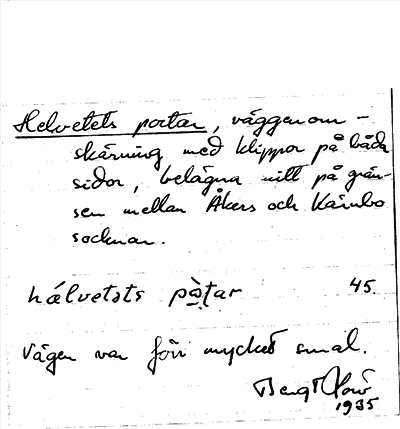 Helvetets portar, väggenom-
skärning med klippor på båda
sidor, belägna mitt på grän-
sen mellan Åkers och Kärnbo
socknar.
hálvetəts pàtar 45
Vägen var förr mycket smal.
Bengt
1935